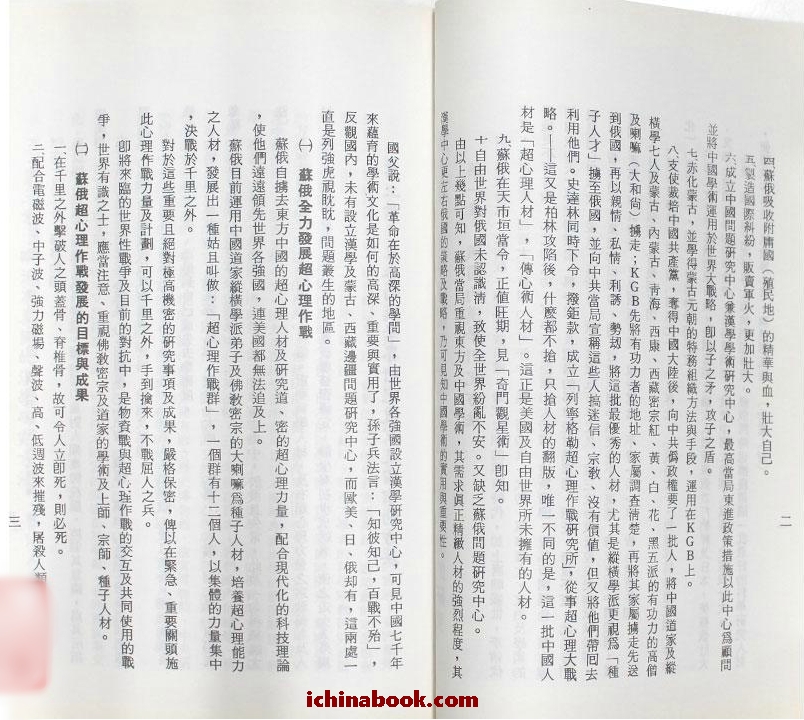 四、蘇俄吸收附庸國（殖民地）的精華與血，壯大自己。
五、製造國際糾紛，販賣軍火，更加壯大。
六、成立中國問題研究中心兼漢學學術研究中心，最高當局東進政策措施以此中心爲顧問
並將中國學術運用於世界大戰略，即以子之矛，攻子之盾。
七、赤化蒙古，並學得蒙古元朝的特務組織方法與手段，運用在KGB上。
八、支使栽培中國共產黨，奪得中國大陸後，向中共僞政權要了一批人，將中國道家及縱
橫學七人及蒙古、內蒙古、青海、西康、西藏密宗紅、黃、白、花、黑五派的有功力的高僧
及喇嘛（大和尚）擄走；KGB先將有功力者的地址、家屬調查清楚，再將其家屬擄走先送
到俄國，再以親情、私情、利誘、勢刼，將這批最優秀的人材，尤其是縱橫學派更視爲「種
子人才」擄至俄國，並向中共當局宣稱這些人搞迷信、宗教、沒有價值，但又將他們帶回去
利用他們。史達林同時下令，撥鉅款，成立「列寧格勒超心理作戰研究所」從事超心理大戰
略。——這又是柏林攻陷後，什麼都不搶，只搶人材的翻版，唯一不同的是，這一批中國人
材是「超心理人材」，「傳心術人材」。這正是美國及自由世界所未擁有的人材。
九、蘇俄在天市垣當令，正值旺期，見「奇門觀星術」即知。
十、自由世界對俄國未認識清，致使全世界紛亂不安。又缺乏蘇俄問題研究中心。
由以上幾點可知，蘇俄當局重視東方及中國學術，其需求眞正精緻人材的強烈程度，其
漢學中心更在右俄國的策略及戰略，乃可見知中國學術的實用與重要性。
二
國父說：「革命在於高深的學問」，由世界各強國設立漢學研究中心，可見中國七千年
來蘊育的學術文化是如何的高深、重要與實用了，孫子兵法言：「知彼知己，百戰不殆」，
反觀國內，未有設立漢學及蒙古、西藏邊疆問題研究中心，而歐美、日、俄却有，這兩處一
直是列強虎視眈眈，問題叢生的地區。
㈠　蘇俄全力發展超心理作戰
蘇俄自擄去東方中國的超心理人材及研究道、密的超心理力量，配合現代化的科技理論
，使他們遠遠領先世界各強國，連美國都無法追及上。
蘇俄目前運用中國道家縱橫學派弟子及佛教密宗的大喇嘛爲種子人材，培養超心理能力
之人材，發展出一種姑且叫做：「超心理作戰群」，一個群有十二個人，以集體的力量集中
，決戰於千里之外。
對於這些重要且絕對極高機密的研究事項及成果，嚴格保密，俾以在緊急、重要關頭施
此心理作戰力量及計劃，可以千里之外，手到擒來，不戰屈人之兵。
卽將來臨的世界性戰爭及目前的對抗中，是物資戰與超心理作戰的交互及共同使用的戰
爭，世界有識之士，應當注意、重視佛敎密宗及道家的學術及上師、宗師、種子人材。
㈡　蘇俄超心理作戰發展的目標與成果
一、在千里之外擊破人之頭蓋骨、脊椎骨，故可令人立卽死，則必死。
二、配合電磁波、中子波、強力磁場、聲波、高、低週波來摧殘，屠殺人類
三
ichinabook.com